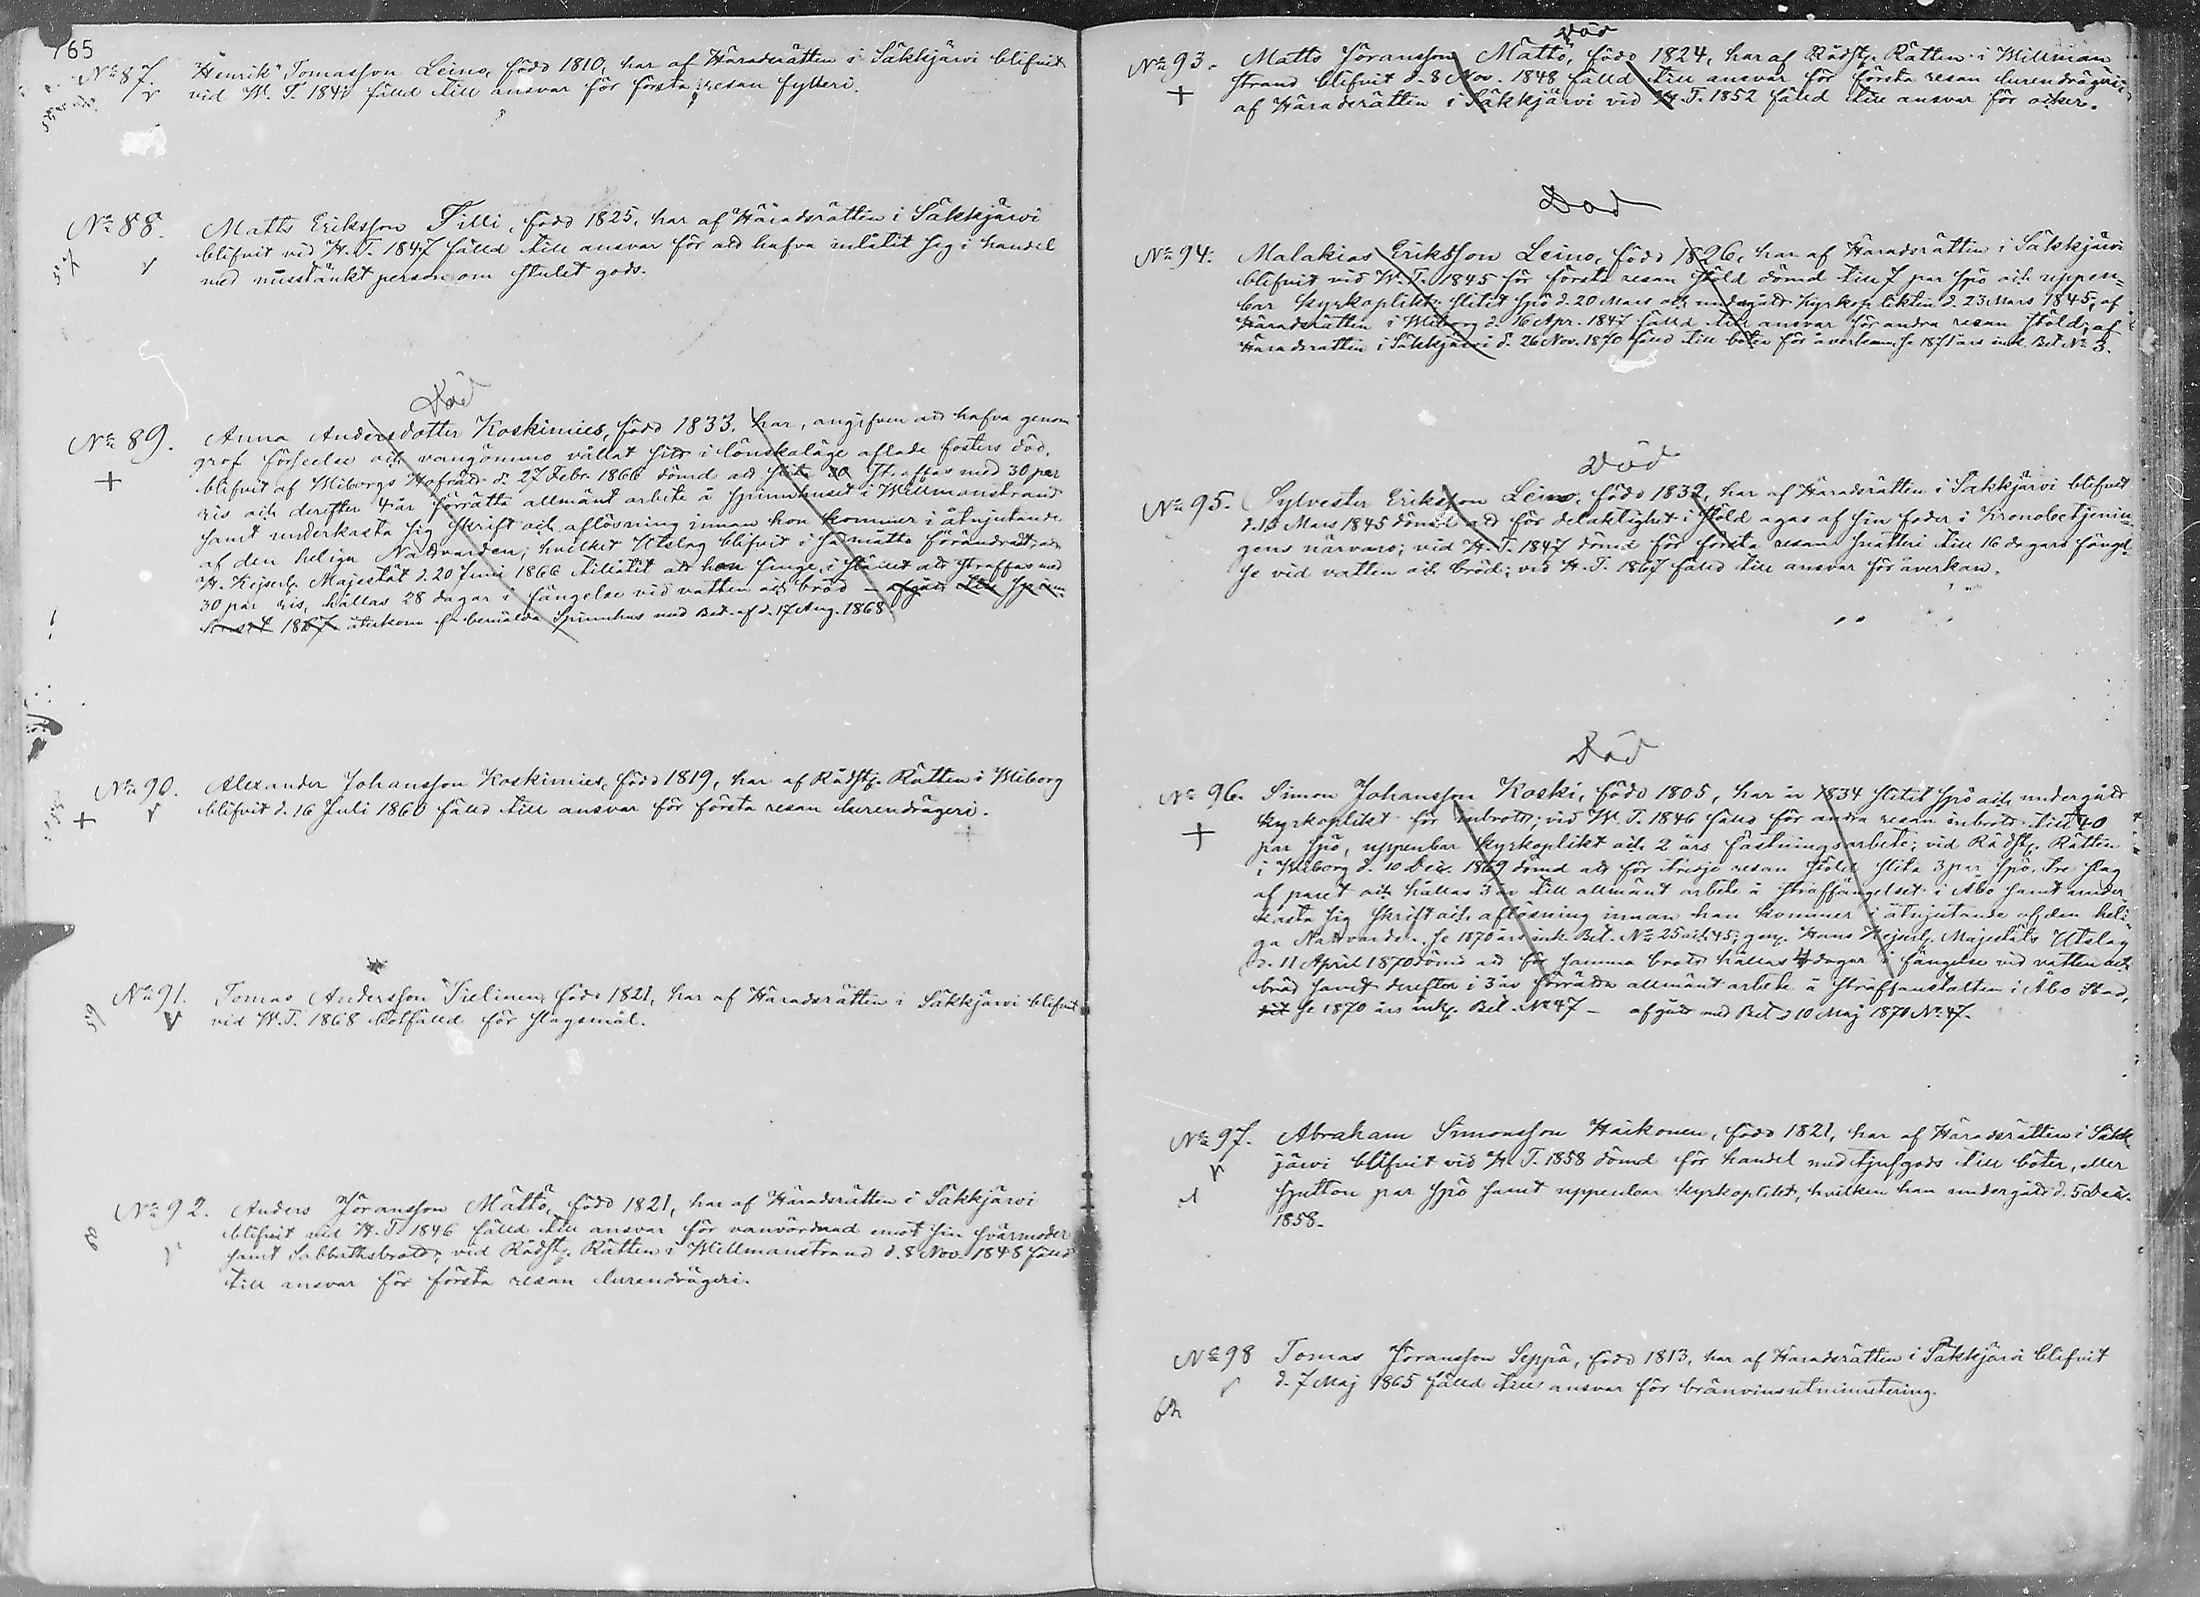 765
No 87. Henrik Tomasson Leino, född 1810, har af Häradsrätten i Säkkjärvi blifvit
vid W. T. 1841 fälld till ansvar för första resan fylleri.
No 88. Matts Eriksson Tilli, född 1825, har af Häradsrätten i Säkkjärvi
57 blifvit vid H. T. 1847 fälld till ansvar för att hafva inlåtit sig i handel
med misstänkt person om stulet gods.
Död
No 89. Anna Andersdotter Koskimies, född 1833, har, angifven att hafva genom
+ grof förseelse och vangömmo vållat sitt i lönskaläge aflade fosters död,
blifvit af Wiborgs Hofrätt d. 27 Febr. 1866 dömd att straffas med 30 par
ris och derefter 4 år förrätta allmänt arbete å spinnhuset i Willmanstrand
samt underkasta sig skrift och aflösning innan hon kommer i åtnjutande
af den heliga Nattvarden; hvilket Utslag blifvit i så måtto förändradt, att
H. Kejserl. Majestät d. 20 Juni 1866 tillåtit att hon finge, i stället att straffas med
30 par ris, hållas 28 dagar i fängelse vid vatten och bröd – afgått till spinn
huset 1867. återkom fr. bemälda Spinnhus med Bet. af d. 17 Aug. 1868
No 90. Alexander Johansson Koskimies, född 1819, har af Rådst. Rätten i Wiborg
+ blifvit d. 16 Juli 1860 fälld till ansvar för första resan lurendrägeri.
No 91. Tomas Andersson Tielinen, född 1821, har af Häradsrätten i Säkkjärvi blifvit
59 vid W. T. 1868 botfälld för slagsmål.
No 92. Anders Jöransson Mättö, född 1821, har af Häradsrätten i Säkkjärvi
60 blifvit vid H. T. 1846 fälld till ansvar för vanvördnad emot sin svärmoder
samt Sabbathsbrott; vid Rådst. Rätten i Willmanstrand d. 8 Nov. 1848 fälld
till ansvar för första resan lurendrägeri.
Död
No 93. Matts Jöransson Mättö, född 1824, har af Rådst. Rätten i Willman
+ strand blifvit d. 8 Nov. 1848 fälld till ansvar för första resan lurendrägeri;
af Häradsrätten i Säkkjärvi vid H. T. 1852 fälld till ansvar för ocker.
Död
No 94. Malakias Eriksson Leino, född 1826, har af Häradsrätten i Säkkjärvi
blifvit vid W. T. 1845 för första resan stöld dömd till 7 par spö och uppen-
bar kyrkoplikt, slitit spö d. 20 Mars och undergått Kyrkoplikten d. 23 Mars 1845; af
Häradsrätten i Wiborg d. 16 Apr. 1847 fälld till ansvar för andra resan stöld; af
Häradsrätten i Säkkjärvi d. 26 Nov. 1870 fälld till böter för åverkan, se 1871 års ink. Bet No 3.
Död
No 95. Sylvester Eriksson Leino, född 1832, har af Häradsrätten i Säkkjärvi blifvit
d. 15 Mars 1845 dömd att för delaktighet i stöld agas af sin fader i Kronobetjenin-
gens närvaro; vid H. T. 1847 dömd för första resan snatteri till 16 dagars fängel-
se vid vatten och bröd; vid H. T. 1867 fälld till ansvar för åverkan.
Död
No 96. Simon Johansson Koski, född 1805, har år 1834 slitit spö och undergått
+ kyrkoplikt för inbrott; vid W. T. 1846 fälld för andra resan inbrott till 40
par spö, uppenbar kyrkoplikt och 2 års fästningsarbete; vid Rådst. Rätten
i Wiborg d. 10 Dec. 1869 dömd att för tredje resan stöld slita 3 par spö, tre slag
af paret och hållas 3 år till allmänt arbete å straffängelset i Åbo samt under
kasta sig skrift och aflösning innan han kommer i åtnjutande af den heli
ga Nattvarden. Se 1870 års ink. Bet. No 25 och 45; gen. Hans Kejserl. Majestäts Utslag
d. 11 April 1870 dömd att för samma brott hållas 4 dagar i fängelse vid vatten och
bröd samt derefter i 3 år förrätta allmänt arbete å straffanstalten i Åbo Stad,
se 1870 års ink. Bet. No 47 – afgått med Bet. d. 10 Maj 1870 No 47.
No 97. Abraham Simonsson Häikönen, född 1821, har af Häradsrätten i Säkk
järvi blifvit vid H. T. 1858 dömd för handel med tjufgods till böter, eller
sjutton par spö samt uppenbar kyrkoplikt, hvilken han undergått d. 5 Dec.
1858.
No 98 Tomas Jöransson Seppä, född 1813, har af Häradsrätten i Säkkjärvi blifvit
d. 7 Maj 1865 fälld till ansvar för bränvinsutminutering.